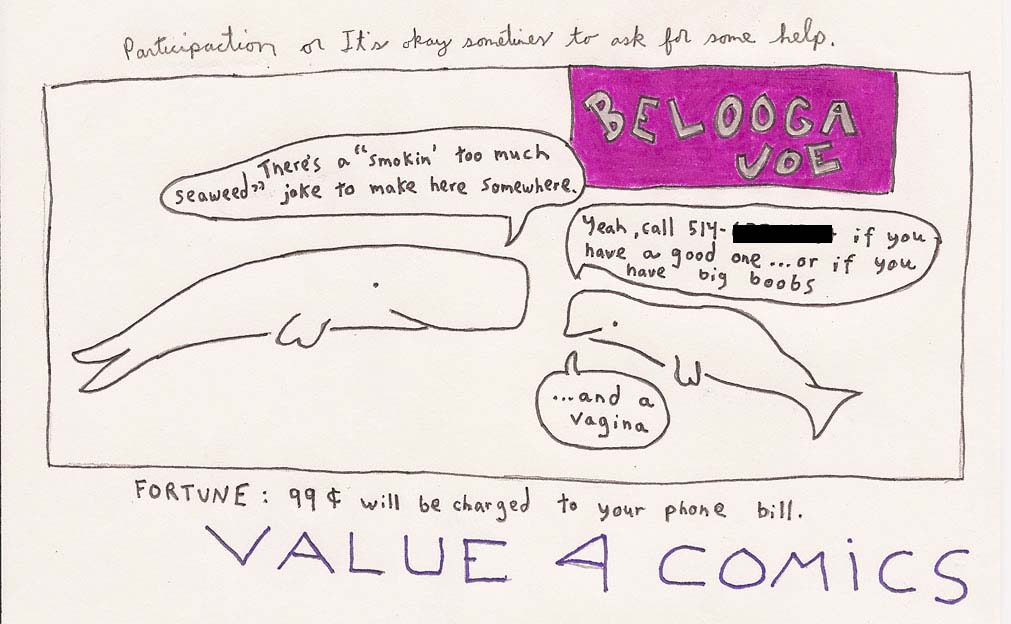 Participaction or It's okay sometimes to ask for some help.
BELOOGA
JOE
There's a "smokin' too much
seaweed" joke to make here somewhere.
Yeah, call 514- if you
have a good one...or if you
have big boobs
...and a
vagina
FORTUNE: 99¢ will be charged to your phone bill.
VALUE 4 COMiCS